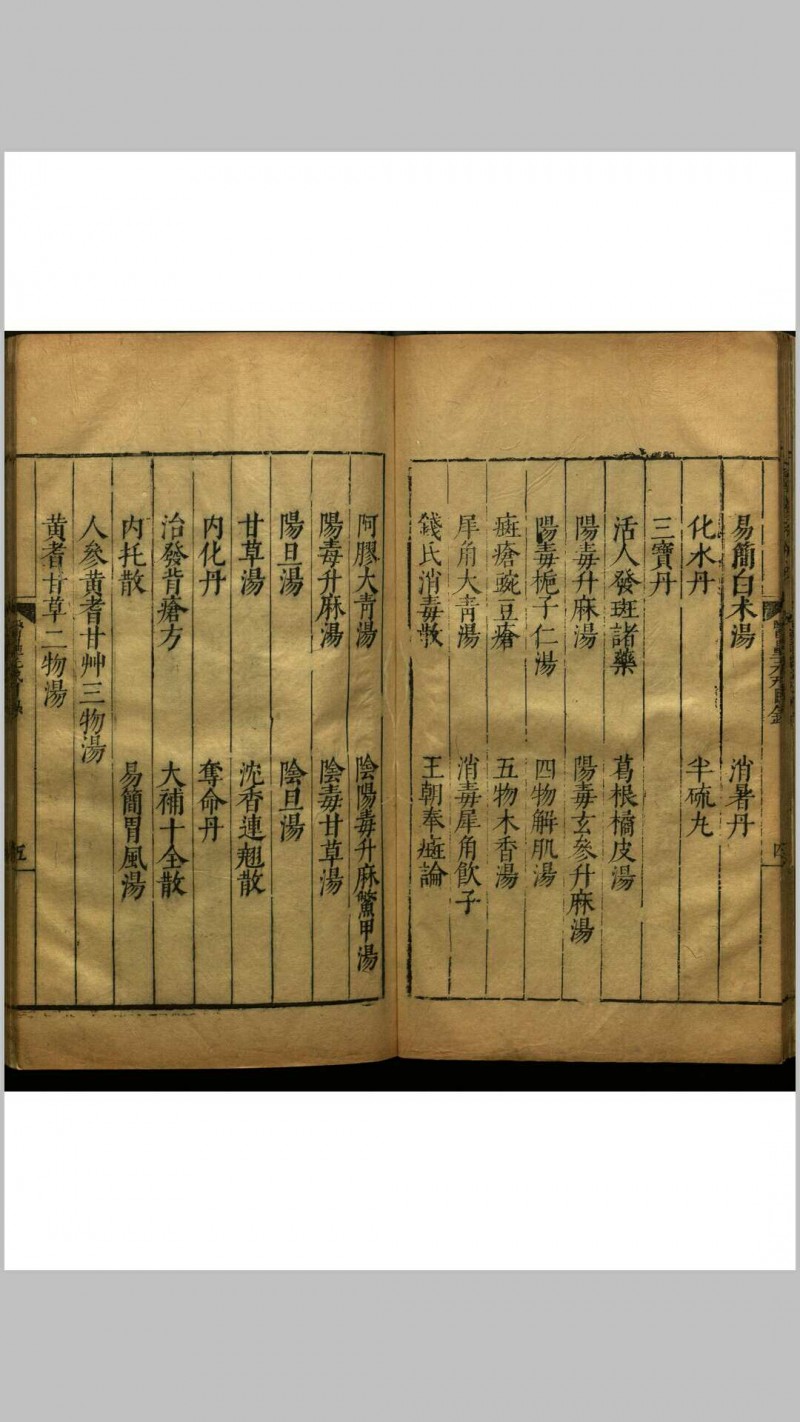 易簡白朮湯　消暑丹
化水丹　半硫丸
三寶丹
活人發斑諸藥　葛根橘皮湯
陽毒升麻湯　陽毒玄參升麻湯
陽毒梔子仁湯　四物解肌湯
㾦瘡豌豆瘡　五物木香湯
犀角大青湯　消毒犀角飲子
錢氏消毒散　王朝奉㾦論
四
阿膠大青湯　陰陽毒升麻鱉甲湯
陽毒升麻湯　陰毒甘草湯
陽旦湯　陰旦湯
甘草湯　沈香連翹散
內化丹　奪命丹
治發背瘡方　大補十全散
內托散　易簡胃風湯
人參黃耆甘艸三物湯
黃耆甘草二物湯
五